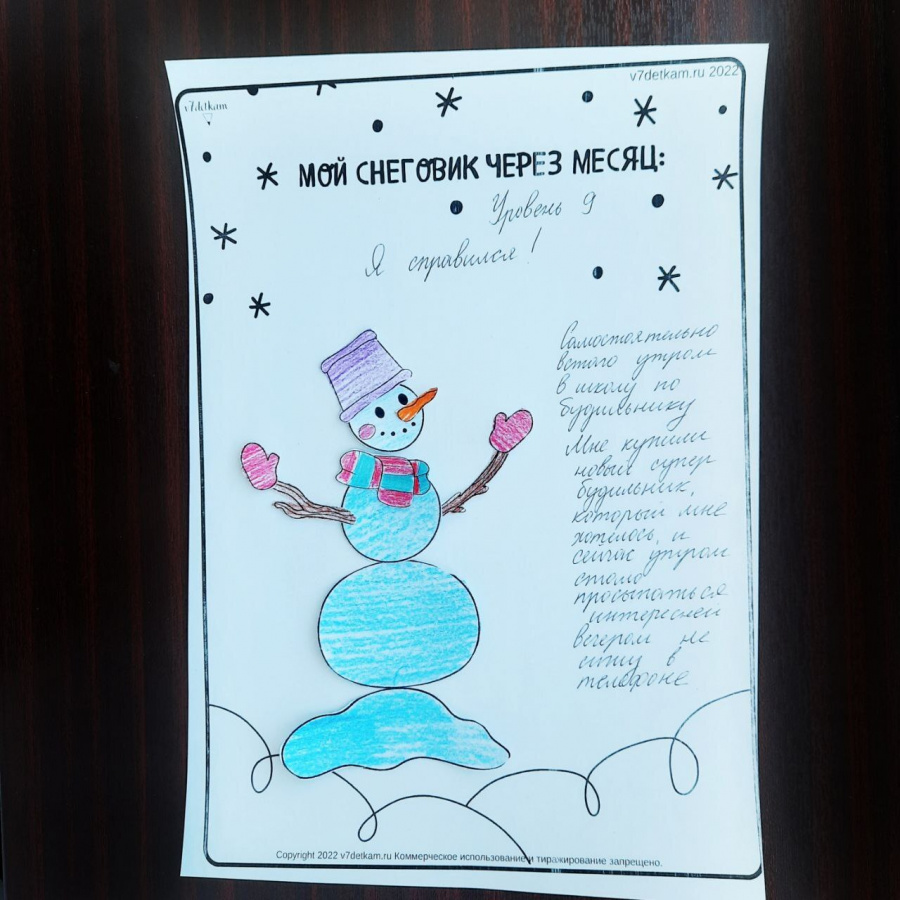 v7detkam.ru 2022
v7detkam
МОЙ СНЕГОВИК ЧЕРЕЗ МЕСЯЦ:
Уровень 9
Я справился!
Самостоятельно
встаю утром
в школу по
будильнику
Мне купили
новый супер
будильник,
который мне
хотелось, и
сейчас утром
стало
просыпаться
интересней
вечером не
сижу в
телефоне
Copyright 2022 v7detkam.ru Коммерческое использование и тиражирование запрещено.